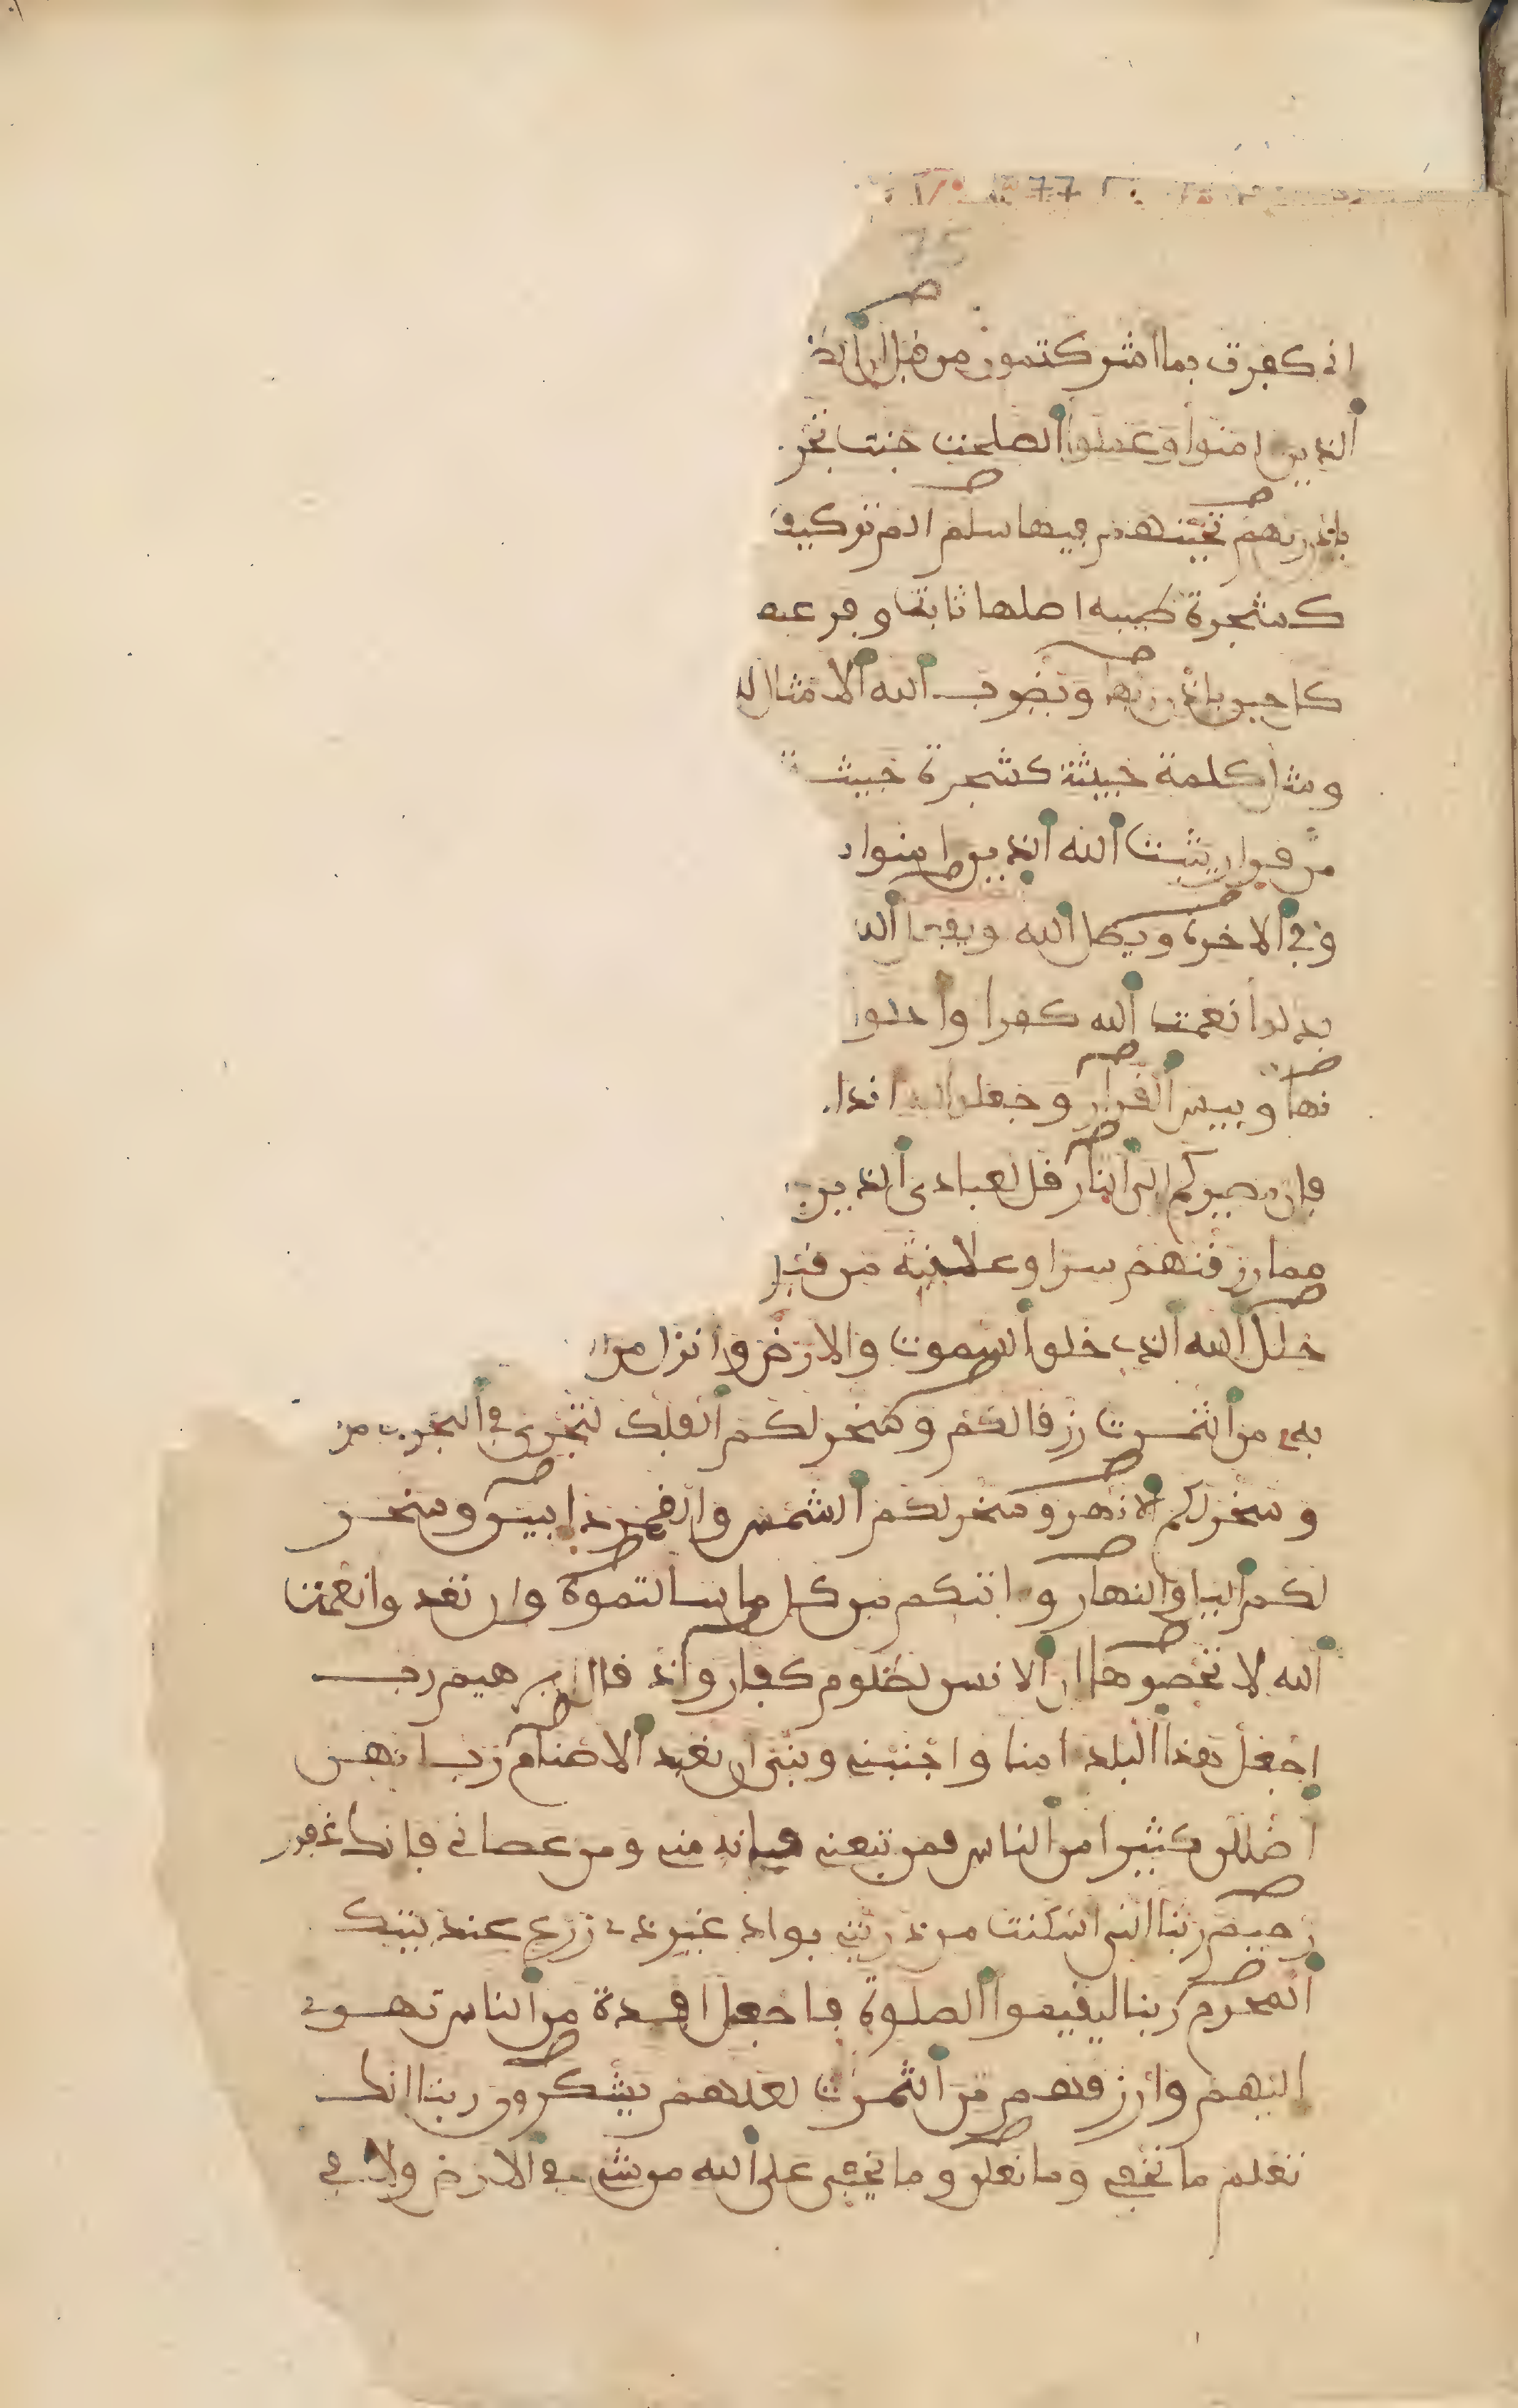 77
75
اني كفرت بما اشركتمون من قبل ان الظ
الذين امنوا وعملوا الصلحت جنت تجر
باذن ربهم تحيتهم فيها سلم الم تر كيف
كشجرة طيبه اصلها ثابت وفرعه
كل حين باذن ربها ويضرب الله الامثال لل
ومثل كلمة خبيثة كشجرة خبيثة
من قرار يثبت الله الذين امنوا
وفي الاخرة ويضل الله ويفعل الله
بدلوا نعمت الله كفرا واحلوا
نها وبيس القرار وجعلوا لله اندا
فان مصيركم الى النار قل لعبادي الذين
مما رزقنهم سرا وعلانية من قبل
خلل الله الذي خلق السموت والارض وانزل من
به من الثمرت رزقا لكم وسخر لكم الفلك لتجري في البحر
وسخر لكم الانهر وسخر لكم الشمس والقمر دايبين وسخر
لكم اليل والنهار واتيكم من كل ما سالتموه وان تعدوا نعمت
الله لا تحصوها ان الانسن لظلوم كفار واذ قال ابرهيم رب
اجعل هذا البلد امنا واجنبني وبني ان نعبد الاصنام رب انهن
اضللن كثيرا من الناس فمن تبعني فانه مني ومن عصاني فانك غفور
رحيم ربنا اني اسكنت من ذريتي بواد غير ذي زرع عند بيتك
المحرم ربنا ليقيموا الصلوة فاجعل افدة من الناس تهوي
اليهم وارزقهم من الثمرت لعلهم يشكرون ربنا انك
تعلم ما نخفي وما نعلن وما يخفى على الله من شي في الارض ولا في